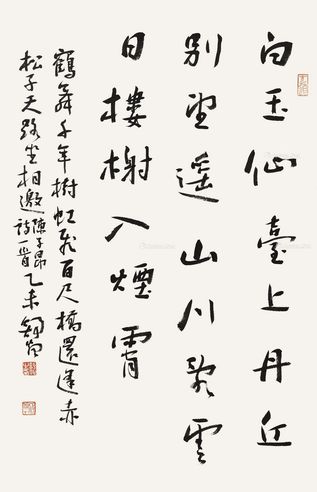 白玉仙臺上丹丘
别望遥山川亂雲
日樓榭入煙霄
鶴舞千年樹虹飛百尺橋還逢赤
松子天路坐相邀 陳子昂
詩一首乙未